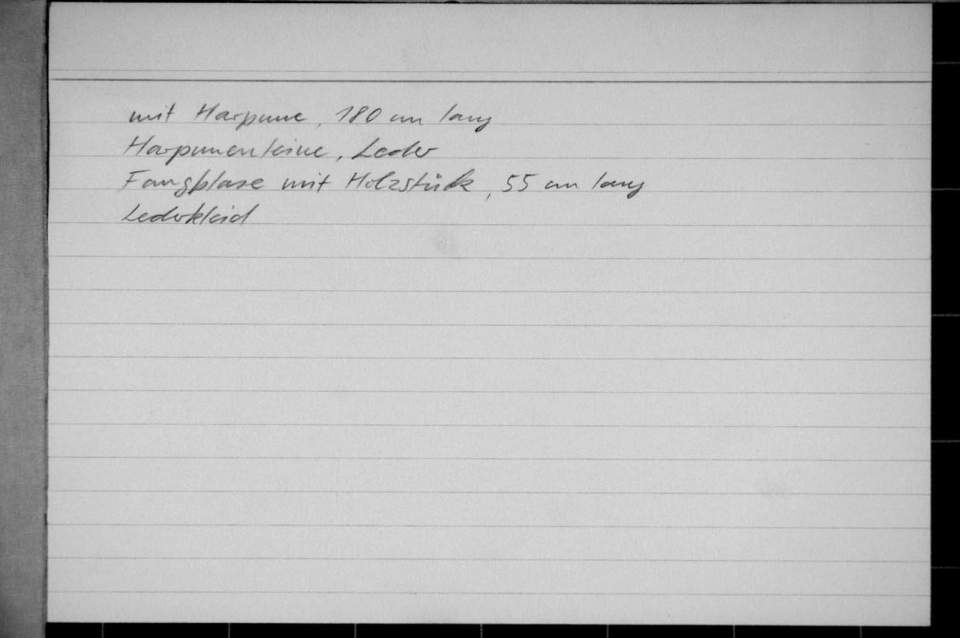 mit Harpune, 180 cm lang
Harpunenleine, Leder
Fangblase mit Holzstück, 55 cm lang
Lederkleid